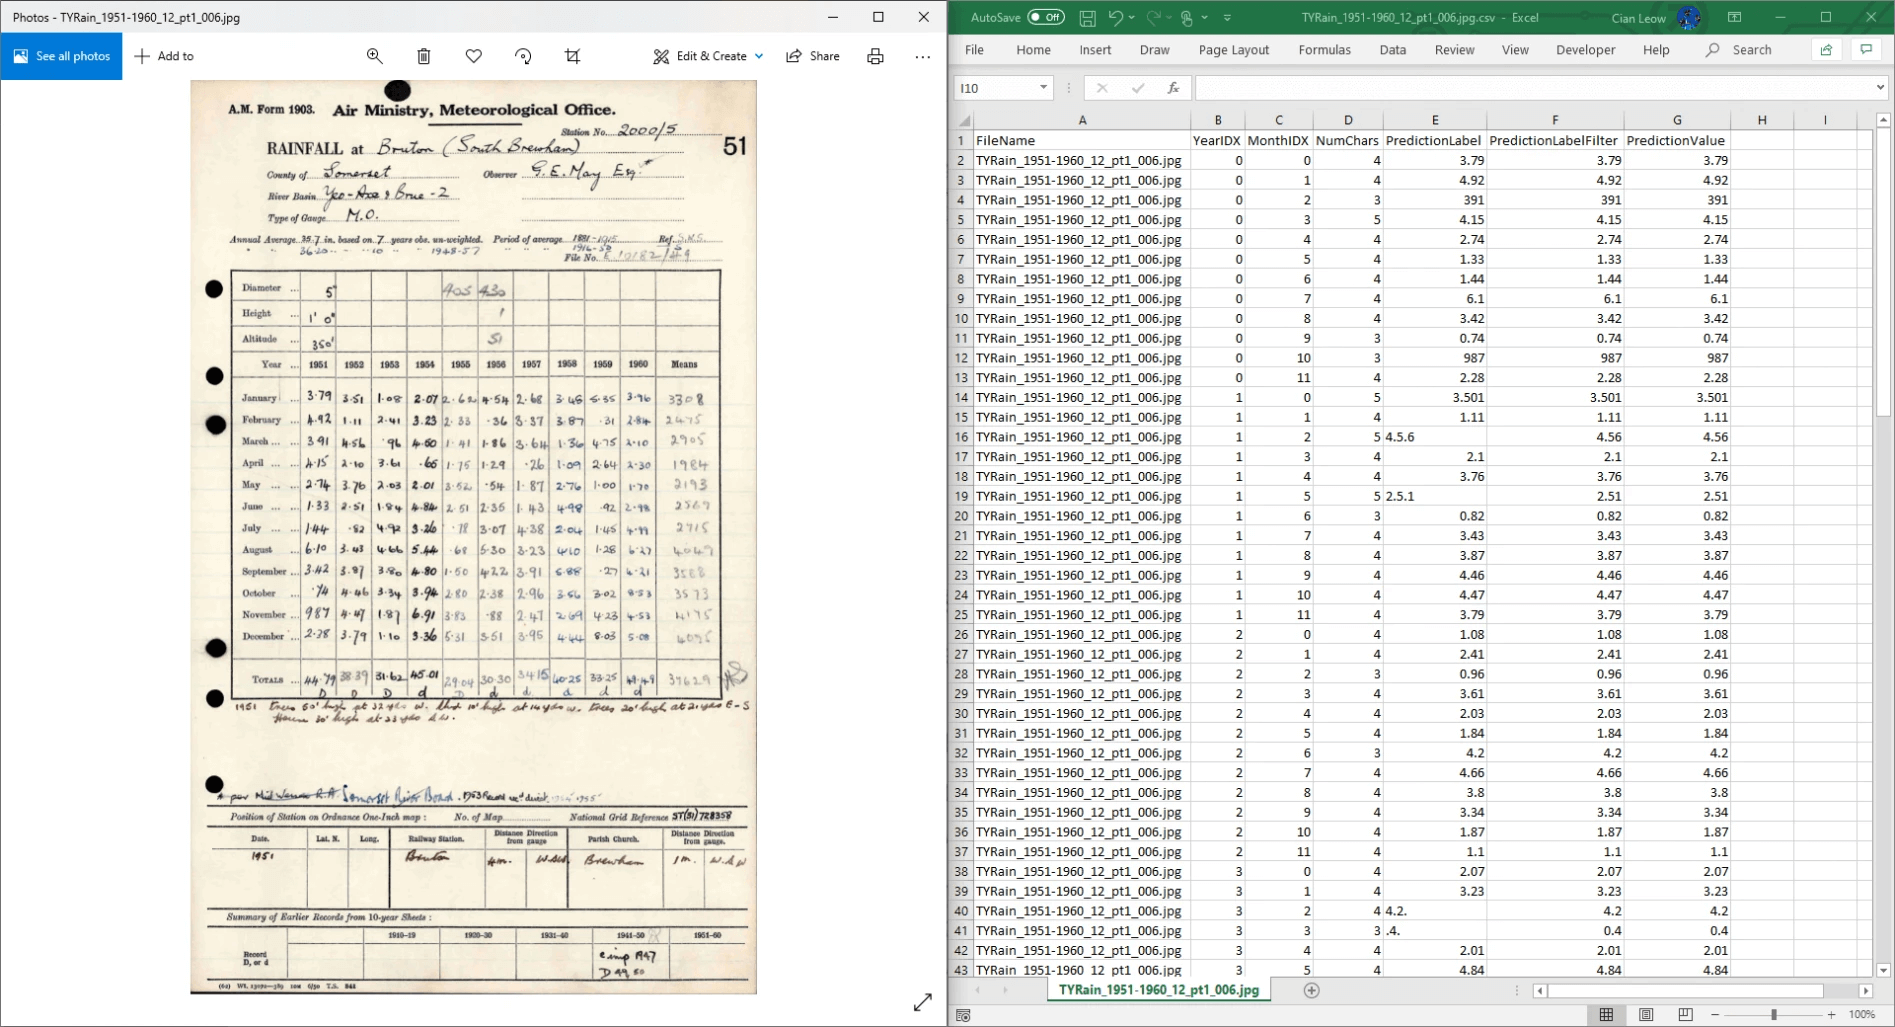 Photos - TYRain_1951-1960_12_pt1_006.jpg
See all photos
Add to
Edit & Create
Share
A.M. Form 1903. Air Ministry, Meteorological Office.
Station No. 2000/5
51
RAINFALL at Bruton (South Brewham)
County of Somerset Observer G.E. May Esq.
River Basin Yeo-Axe & Brue - 2
Type of Gauge M.O.
Annual Average 35.7 in. based on 7 years obs. un-weighted. Period of average 1881-1915 Ref. S.W.S.
36.20 10 1948-57 1916-50
File No.
Diameter ... 5" 405 430
Height ... 1' 0"
Altitude ... 350' 51
Year ... 1951 1952 1953 1954 1955 1956 1957 1958 1959 1960 Means
January ... 3.79 3.51 1.08 2.07 2.62 4.54 2.68 3.48 5.35 3.96 3308
February ... 4.92 1.11 2.41 3.23 2.33 .36 3.37 3.87 .31 2.84 2475
March ... 3.91 4.56 .96 4.60 1.41 1.86 3.64 1.36 4.75 2.10 2905
April ... 4.15 2.10 3.61 .65 1.75 1.29 .26 1.09 2.64 2.30 1984
May ... 2.74 3.76 2.03 2.01 3.52 .54 1.87 2.76 1.00 1.70 2193
June ... 1.33 2.51 1.84 4.84 2.51 2.35 1.43 4.98 .92 2.98 2569
July ... 1.44 .82 4.92 3.26 .18 3.07 4.38 2.04 1.45 4.99 2715
August ... 6.10 3.43 4.66 5.44 .68 5.30 3.23 4.10 1.28 6.27 4049
September ... 3.42 3.87 3.80 4.80 1.50 4.22 3.91 5.88 .27 4.21 3588
October ... .74 4.46 3.34 3.94 2.80 2.38 2.96 3.56 3.02 8.53 3573
November ... 987 4.47 1.87 6.91 3.83 .88 2.47 2.69 4.23 4.53 4175
December ... 2.28 3.79 1.10 3.36 5.31 3.51 3.95 4.44 8.03 5.08
TOTALS ... 44.79 38.39 31.62 45.01 29.04 30.30 34.15 40.25 33.25 49.49 37629
D D D d D d d d d d
1951 Trees 50' high at 32 yds W. Shed 10' high at 14 yds W. Trees 20' high at 21 yds E-S
House 30' high at 33 yds
Somerset River Board. 1953 Record
Position of Station on Ordnance One-Inch map : No. of Map National Grid Reference ST(31) 728358
Date. Lat. N. Long. Railway Station. Distance Direction from gauge. Parish Church. Distance Direction from gauge.
1951 Bruton 4m. W.S.W. Brewham 1m. W.S.W
Summary of Earlier Records from 10-year Sheets :
1910-19 1920-30 1931-40 1941-50 1951-60
Record D, or d
1947
D 49, 50
AutoSave Off
TYRain_1951-1960_12_pt1_006.jpg.csv - Excel
Cian Leow
File Home Insert Draw Page Layout Formulas Data Review View Developer Help Search
I10 fx
A B C D E F G H I
1 FileName YearIDX MonthIDX NumChars PredictionLabel PredictionLabelFilter PredictionValue
2 TYRain_1951-1960_12_pt1_006.jpg 0 0 4 3.79 3.79 3.79
3 TYRain_1951-1960_12_pt1_006.jpg 0 1 4 4.92 4.92 4.92
4 TYRain_1951-1960_12_pt1_006.jpg 0 2 3 391 391 391
5 TYRain_1951-1960_12_pt1_006.jpg 0 3 5 4.15 4.15 4.15
6 TYRain_1951-1960_12_pt1_006.jpg 0 4 4 2.74 2.74 2.74
7 TYRain_1951-1960_12_pt1_006.jpg 0 5 4 1.33 1.33 1.33
8 TYRain_1951-1960_12_pt1_006.jpg 0 6 4 1.44 1.44 1.44
9 TYRain_1951-1960_12_pt1_006.jpg 0 7 4 6.1 6.1 6.1
10 TYRain_1951-1960_12_pt1_006.jpg 0 8 4 3.42 3.42 3.42
11 TYRain_1951-1960_12_pt1_006.jpg 0 9 3 0.74 0.74 0.74
12 TYRain_1951-1960_12_pt1_006.jpg 0 10 3 987 987 987
13 TYRain_1951-1960_12_pt1_006.jpg 0 11 4 2.28 2.28 2.28
14 TYRain_1951-1960_12_pt1_006.jpg 1 0 5 3.501 3.501 3.501
15 TYRain_1951-1960_12_pt1_006.jpg 1 1 4 1.11 1.11 1.11
16 TYRain_1951-1960_12_pt1_006.jpg 1 2 5 4.5.6 4.56 4.56
17 TYRain_1951-1960_12_pt1_006.jpg 1 3 4 2.1 2.1 2.1
18 TYRain_1951-1960_12_pt1_006.jpg 1 4 4 3.76 3.76 3.76
19 TYRain_1951-1960_12_pt1_006.jpg 1 5 5 2.5.1 2.51 2.51
20 TYRain_1951-1960_12_pt1_006.jpg 1 6 3 0.82 0.82 0.82
21 TYRain_1951-1960_12_pt1_006.jpg 1 7 4 3.43 3.43 3.43
22 TYRain_1951-1960_12_pt1_006.jpg 1 8 4 3.87 3.87 3.87
23 TYRain_1951-1960_12_pt1_006.jpg 1 9 4 4.46 4.46 4.46
24 TYRain_1951-1960_12_pt1_006.jpg 1 10 4 4.47 4.47 4.47
25 TYRain_1951-1960_12_pt1_006.jpg 1 11 4 3.79 3.79 3.79
26 TYRain_1951-1960_12_pt1_006.jpg 2 0 4 1.08 1.08 1.08
27 TYRain_1951-1960_12_pt1_006.jpg 2 1 4 2.41 2.41 2.41
28 TYRain_1951-1960_12_pt1_006.jpg 2 2 3 0.96 0.96 0.96
29 TYRain_1951-1960_12_pt1_006.jpg 2 3 4 3.61 3.61 3.61
30 TYRain_1951-1960_12_pt1_006.jpg 2 4 4 2.03 2.03 2.03
31 TYRain_1951-1960_12_pt1_006.jpg 2 5 4 1.84 1.84 1.84
32 TYRain_1951-1960_12_pt1_006.jpg 2 6 3 4.2 4.2 4.2
33 TYRain_1951-1960_12_pt1_006.jpg 2 7 4 4.66 4.66 4.66
34 TYRain_1951-1960_12_pt1_006.jpg 2 8 4 3.8 3.8 3.8
35 TYRain_1951-1960_12_pt1_006.jpg 2 9 4 3.34 3.34 3.34
36 TYRain_1951-1960_12_pt1_006.jpg 2 10 4 1.87 1.87 1.87
37 TYRain_1951-1960_12_pt1_006.jpg 2 11 4 1.1 1.1 1.1
38 TYRain_1951-1960_12_pt1_006.jpg 3 0 4 2.07 2.07 2.07
39 TYRain_1951-1960_12_pt1_006.jpg 3 1 4 3.23 3.23 3.23
40 TYRain_1951-1960_12_pt1_006.jpg 3 2 4 4.2. 4.2 4.2
41 TYRain_1951-1960_12_pt1_006.jpg 3 3 3 .4. 0.4 0.4
42 TYRain_1951-1960_12_pt1_006.jpg 3 4 4 2.01 2.01 2.01
43 TYRain_1951-1960_12_pt1_006.jpg 3 5 4 4.84 4.84 4.84
TYRain_1951-1960_12_pt1_006.jpg
100%